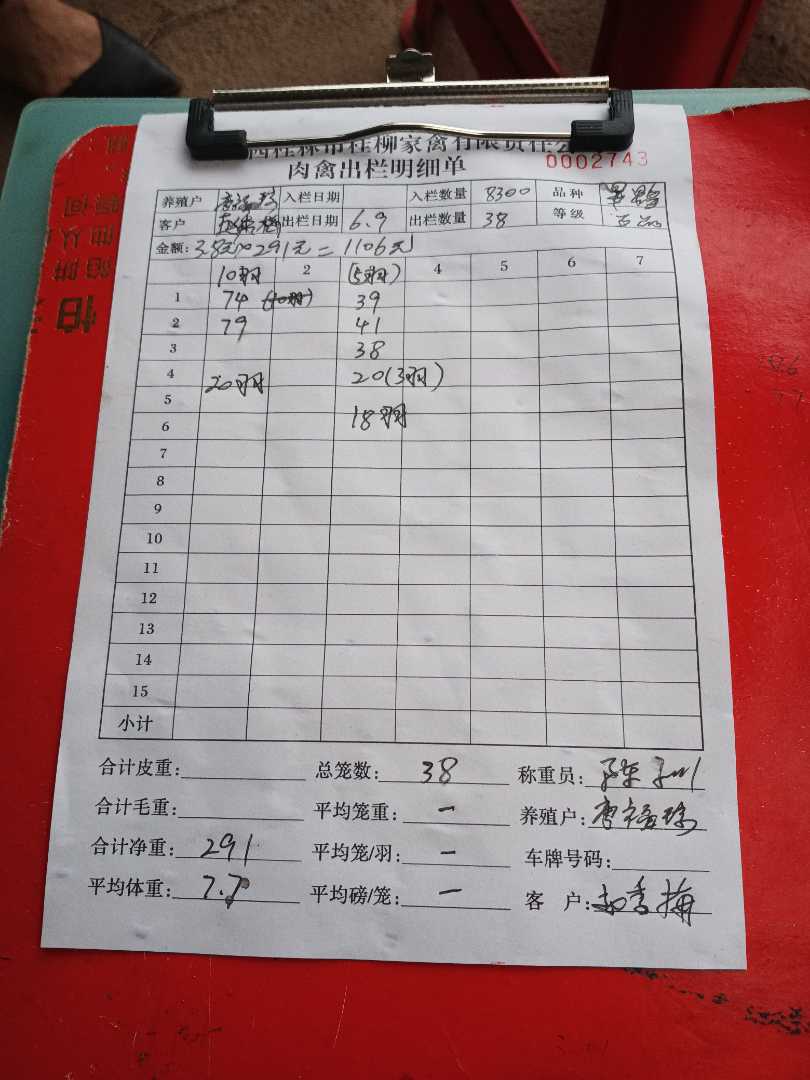 西桂林市桂柳家禽有限责任公
肉禽出栏明细单 0002743
养殖户 入栏日期 入栏数量 8300 品种
客户 出栏日期 6.9 出栏数量 38 等级
金额: 3.8元×291元=1106元
10羽 2 (5羽) 4 5 6 7
1 74 39
2 79 41
3 38
4 20羽 20(3羽)
5
6 18羽
7
8
9
10
11
12
13
14
15
小计
合计皮重: 总笼数: 38 称重员:
合计毛重: 平均笼重: 一 养殖户:
合计净重: 291 平均笼/羽: 一 车牌号码:
平均体重: 7.7 平均磅/笼: 一 客 户: